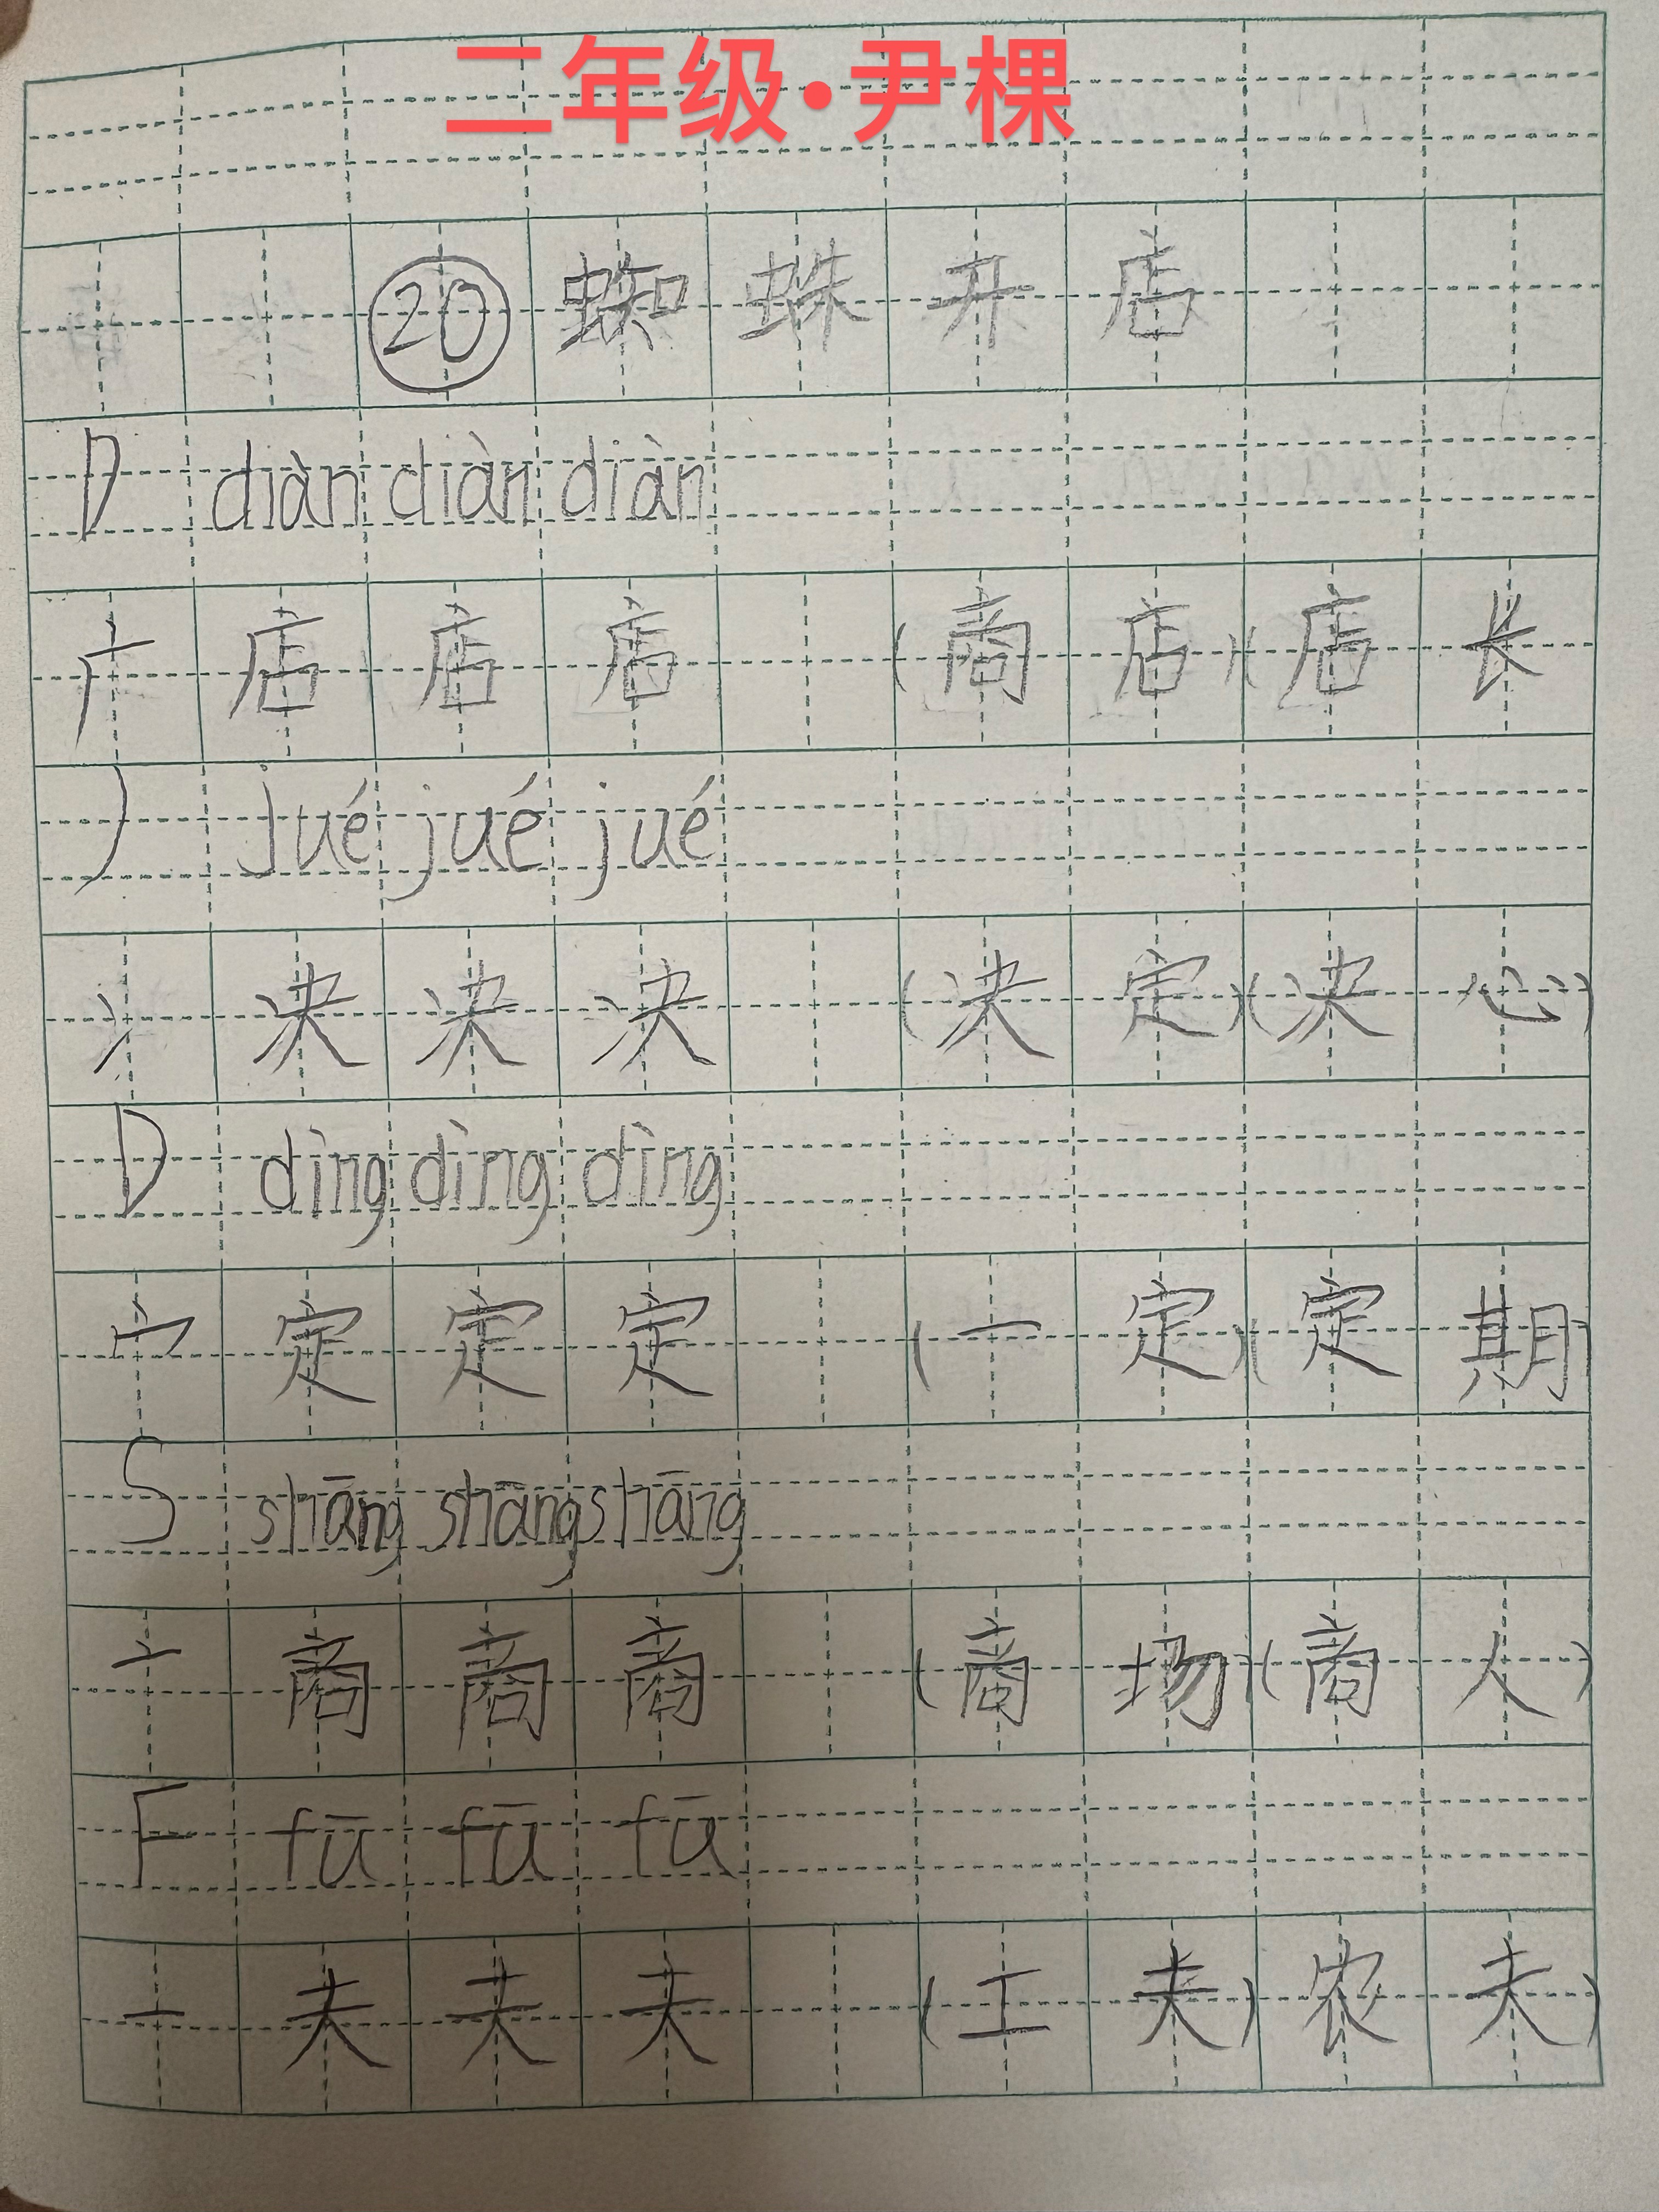 二年级·尹棵
⑳ 蜘 蛛 开 店
D diàn diàn diàn
广 店 店 店 (商 店)(店 长
J jué jué jué
冫 决 决 决 (决 定)(决 心)
D dìng dìng dìng
宀 定 定 定 (一 定)(定 期
S shāng shāng shāng
亠 商 商 商 (商 场)(商 人)
F fū fū fū
一 夫 夫 夫 (工 夫) 农 夫)